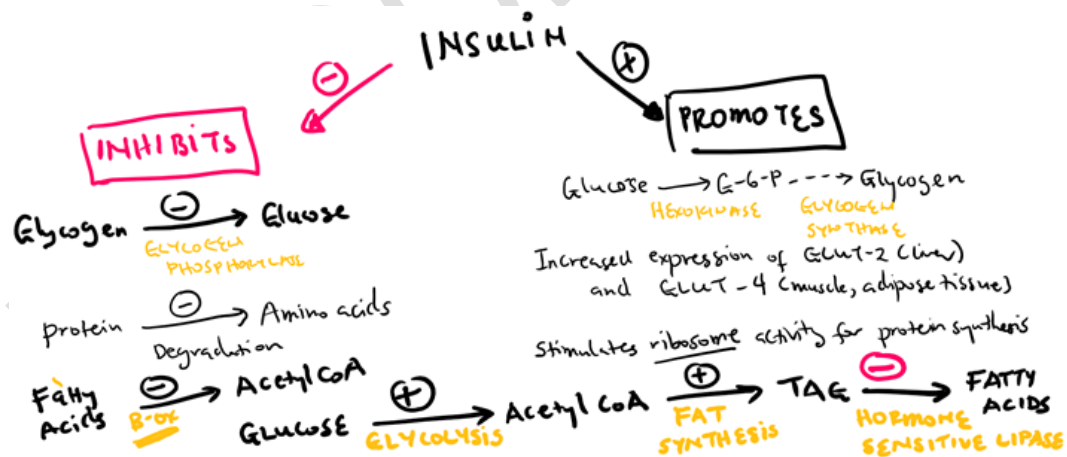 INSULIN
INHIBITS
PROMOTES
Glycogen ⊖→ Glucose
GLYCOGEN
PHOSPHORYLASE
Protein ⊖→ Amino acids
Degradation
Fatty Acids ⊖→ Acetyl CoA
B-OX
Glucose → G-6-P ---> Glycogen
HEXOKINASE GLYCOGEN
SYNTHASE
Increased expression of GLUT-2 (liver)
and GLUT-4 (muscle, adipose tissue)
Stimulates ribosome activity for protein synthesis
GLUCOSE ⊕→ Acetyl CoA ⊕→ TAG ⊖→ FATTY ACIDS
GLYCOLYSIS FAT HORMONE
SYNTHESIS SENSITIVE LIPASE